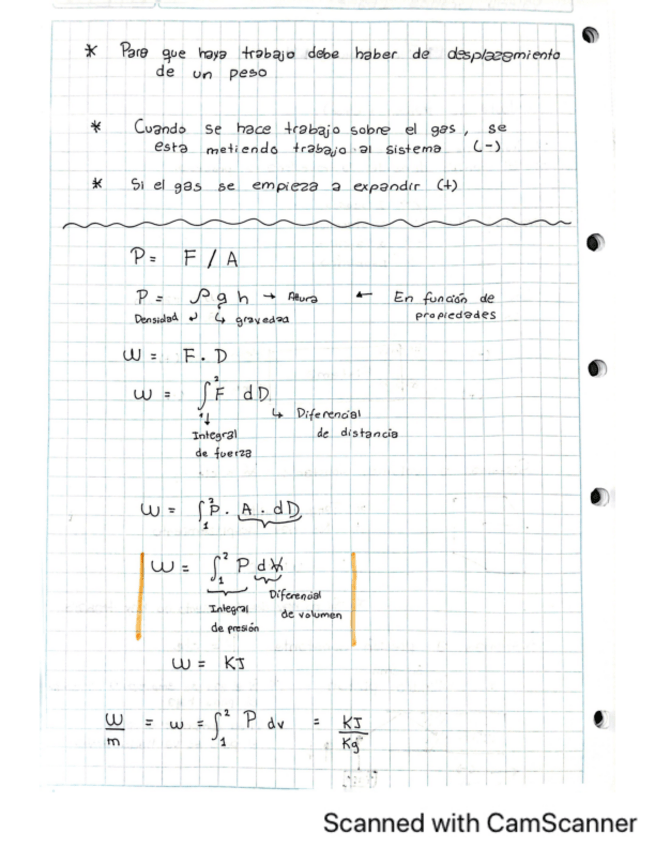 * Para que haya trabajo debe haber de desplazamiento
de un peso
* Cuando se hace trabajo sobre el gas, se
esta metiendo trabajo al sistema (-)
* Si el gas se empieza a expandir (+)
P = F / A
P = ρ g h → Altura ← En función de
propiedades
Densidad ↲ ↳ gravedad
W = F . D
W = ∫₁² F dD
↳ Diferencial
de distancia
Integral
de fuerza
W = ∫₁² P . A . dD
W = ∫₁² P dV
Diferencial
de volumen
Integral
de presión
W = KJ
W/m = w = ∫₁² P dv = KJ/Kg
Scanned with CamScanner